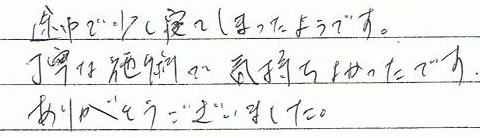 途中で少し寝てしまったようです。
丁寧な施術で気持ちよかったです.
ありがとうございました。